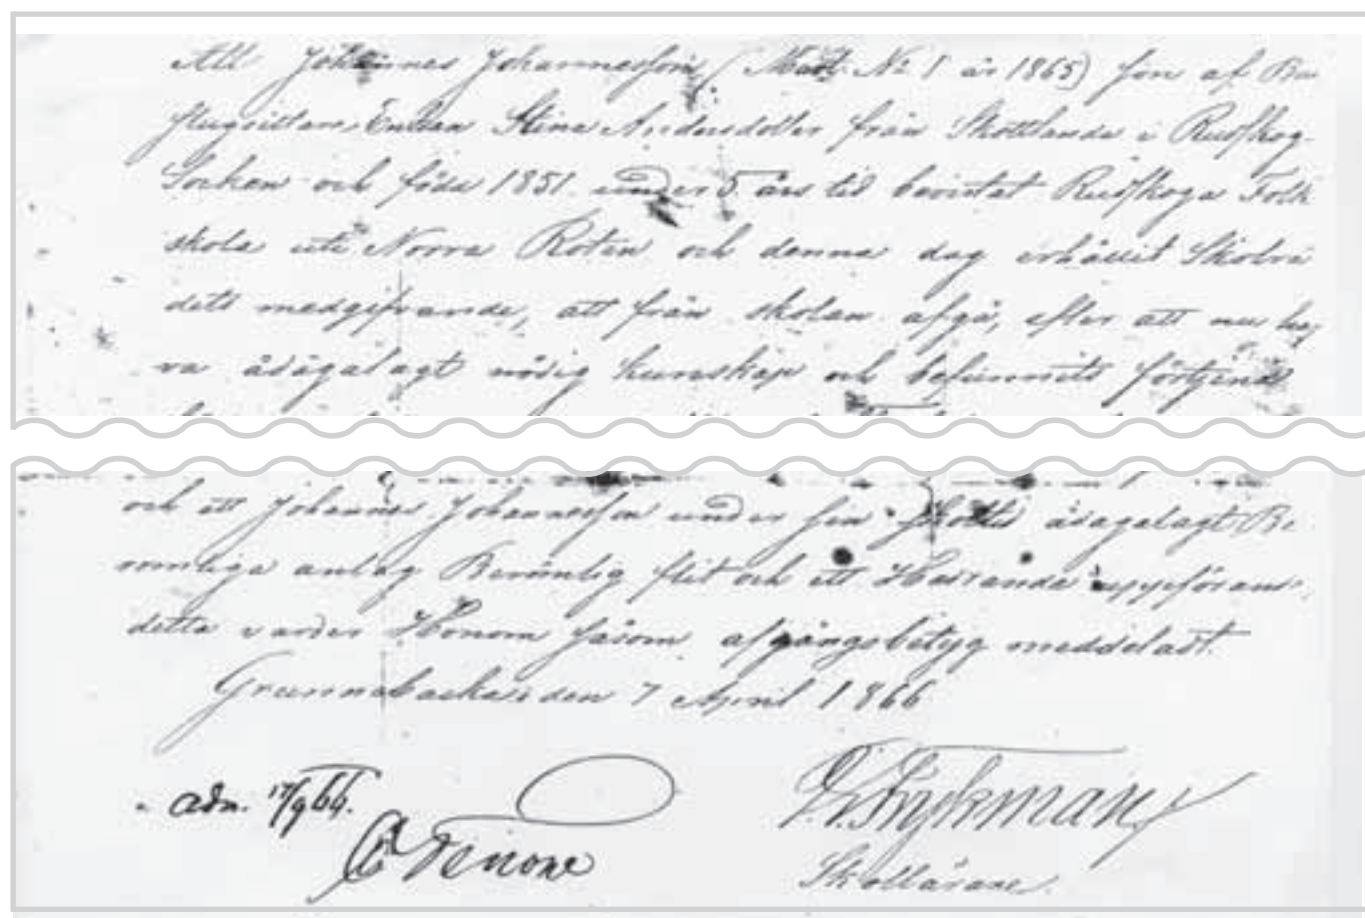 Att Johannes Johannesson (Matr. No 1 år 1865) son af
Enkan Stina Andersdotter från Skottlanda i Rudskog
Socken och född 1851. under 5 års tid bevistat Rudskoga Folk
skola uti Norra Roten och denna dag erhållit Skolrå
dets medgifvande, att från skolan afgå, efter att nu haf
va ådagalagt nödig kunskap och befunnits förtjena
och att Johannes Johannesson under sin ådagalagt Be
römliga anlag Berömlig flit och ett Hedrande uppförande
detta varder Honom såsom afgångsbetyg meddeladt.
Grunnebacka den 7 April 1866
Skollärare.